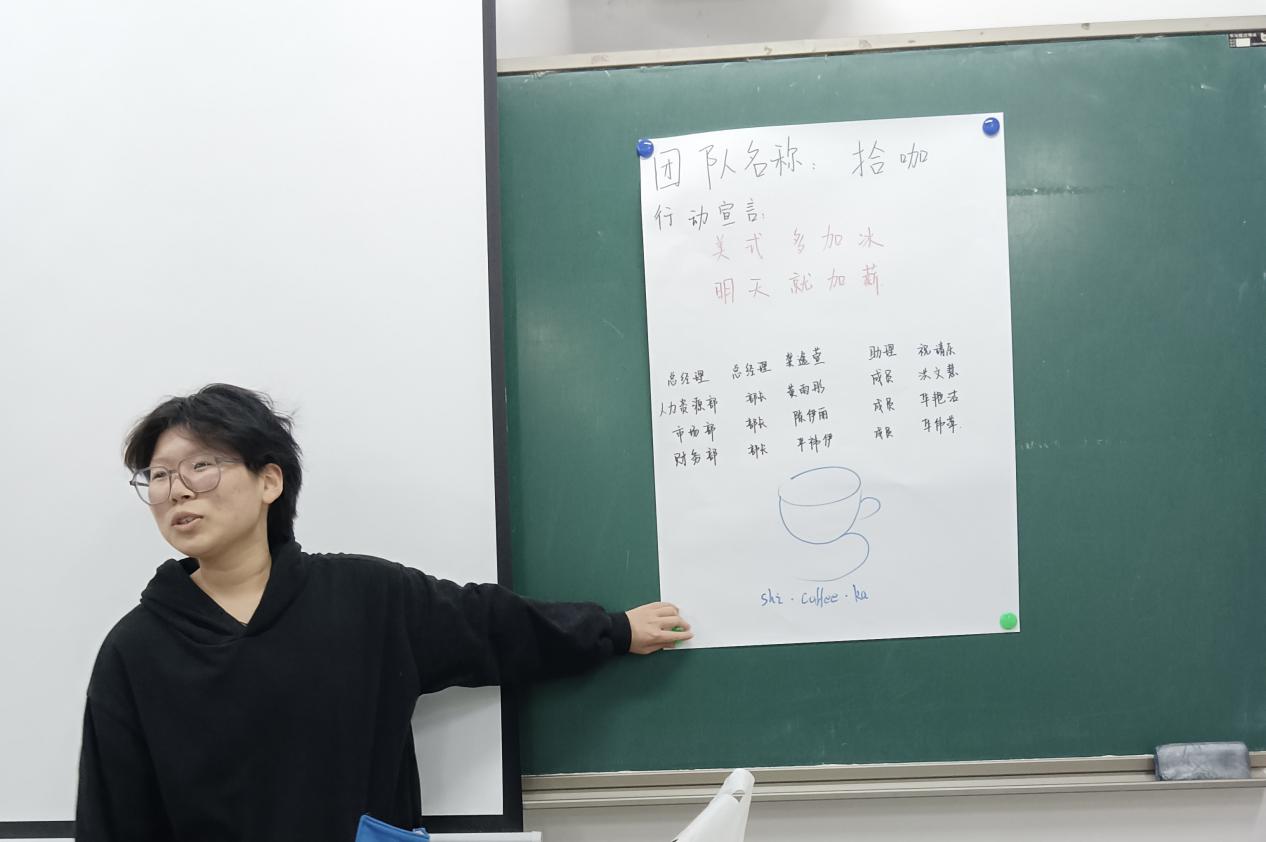 团队名称：拾咖
行动宣言：
美式多加冰
明天就加薪
总经理 总经理 助理
人力资源部 部长 黄雨彤 成员 洪文慧
市场部 部长 陈伊丽 成员
财务部 部长 成员
shi · coffee · ka